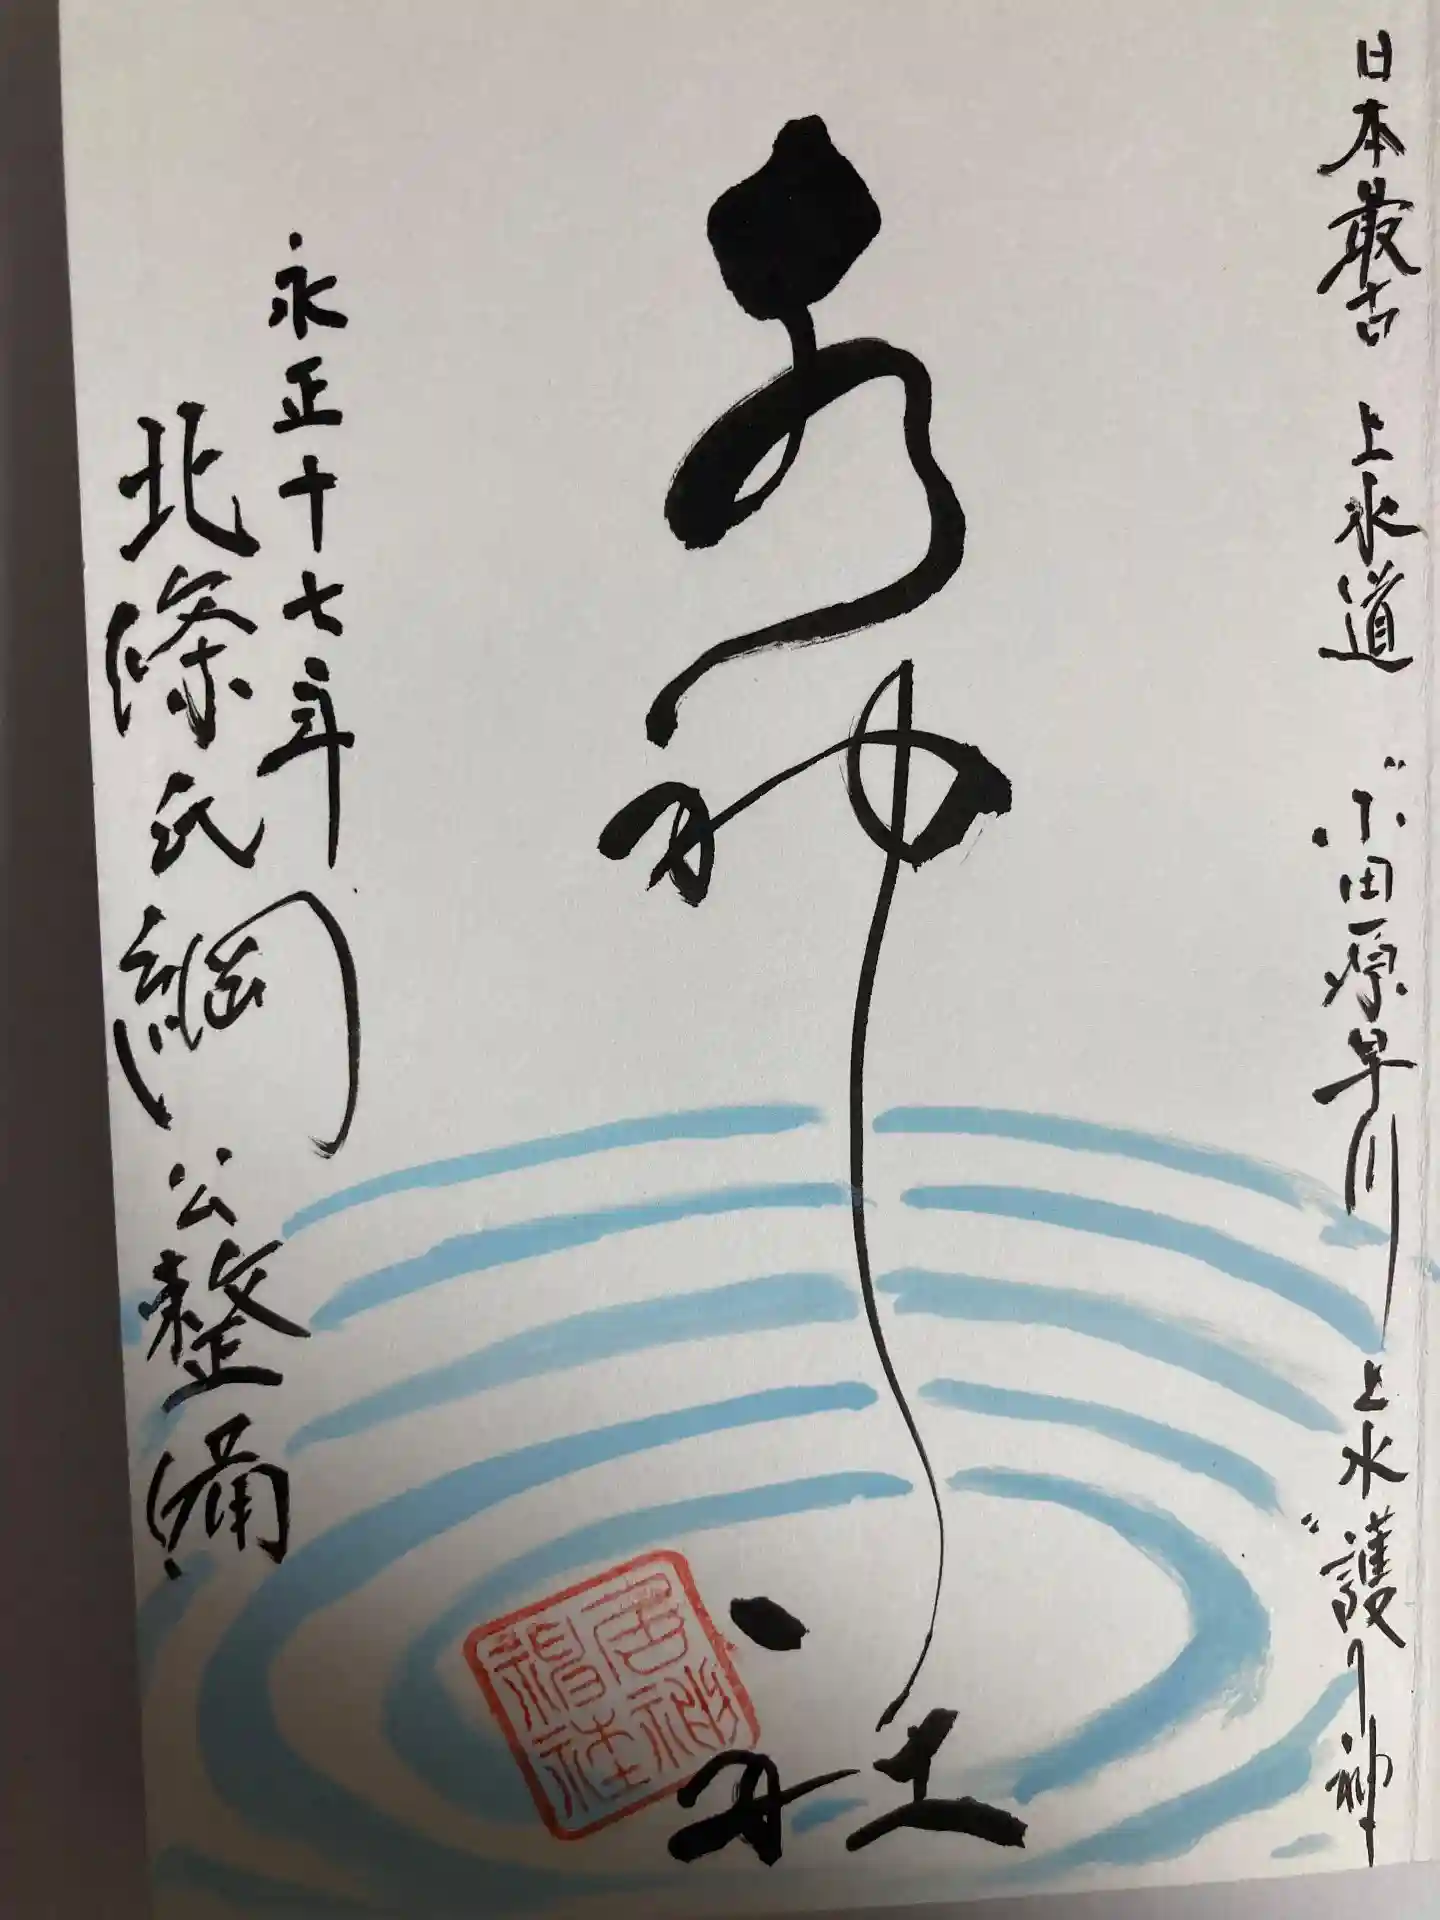 日本最古 上水道 〝小田原早川上水〟護り神
居神ヽ社
居神
神社
永正十七年
北條氏綱公整備